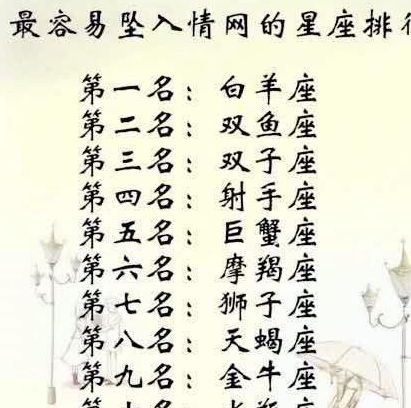 最容易坠入情网的星座排
第一名：白羊座
第二名：双鱼座
第三名：双子座
第四名：射手座
第五名：巨蟹座
第六名：摩羯座
第七名：狮子座
第八名：天蝎座
第九名：金牛座